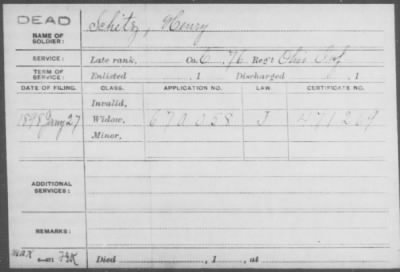 DEAD
NAME OF SOLDIER: Schitz, Henry
SERVICE: Late rank, Co. E 76 Reg't Ohio Inf
TERM OF SERVICE: Enlisted , 1 Discharged , 1
DATE OF FILING. CLASS. APPLICATION NO. LAW. CERTIFICATE NO.
Invalid,
1898 Jany 27 Widow, 670 058 J 471 269
Minor,
ADDITIONAL SERVICES:
REMARKS:
Died , 1 , at